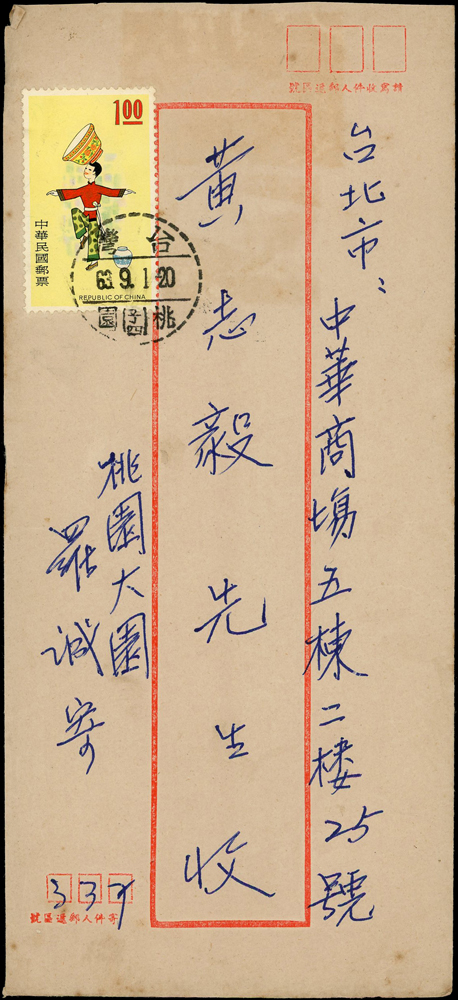 請寫收件人郵遞區號
台北市：中華商場五棟二樓25號
黃志毅先生收
1.00
中華民國郵票
REPUBLIC OF CHINA
台灣
63.9.1-20
桃園
桃園大園
羅誠寄
337
寄件人郵遞區號